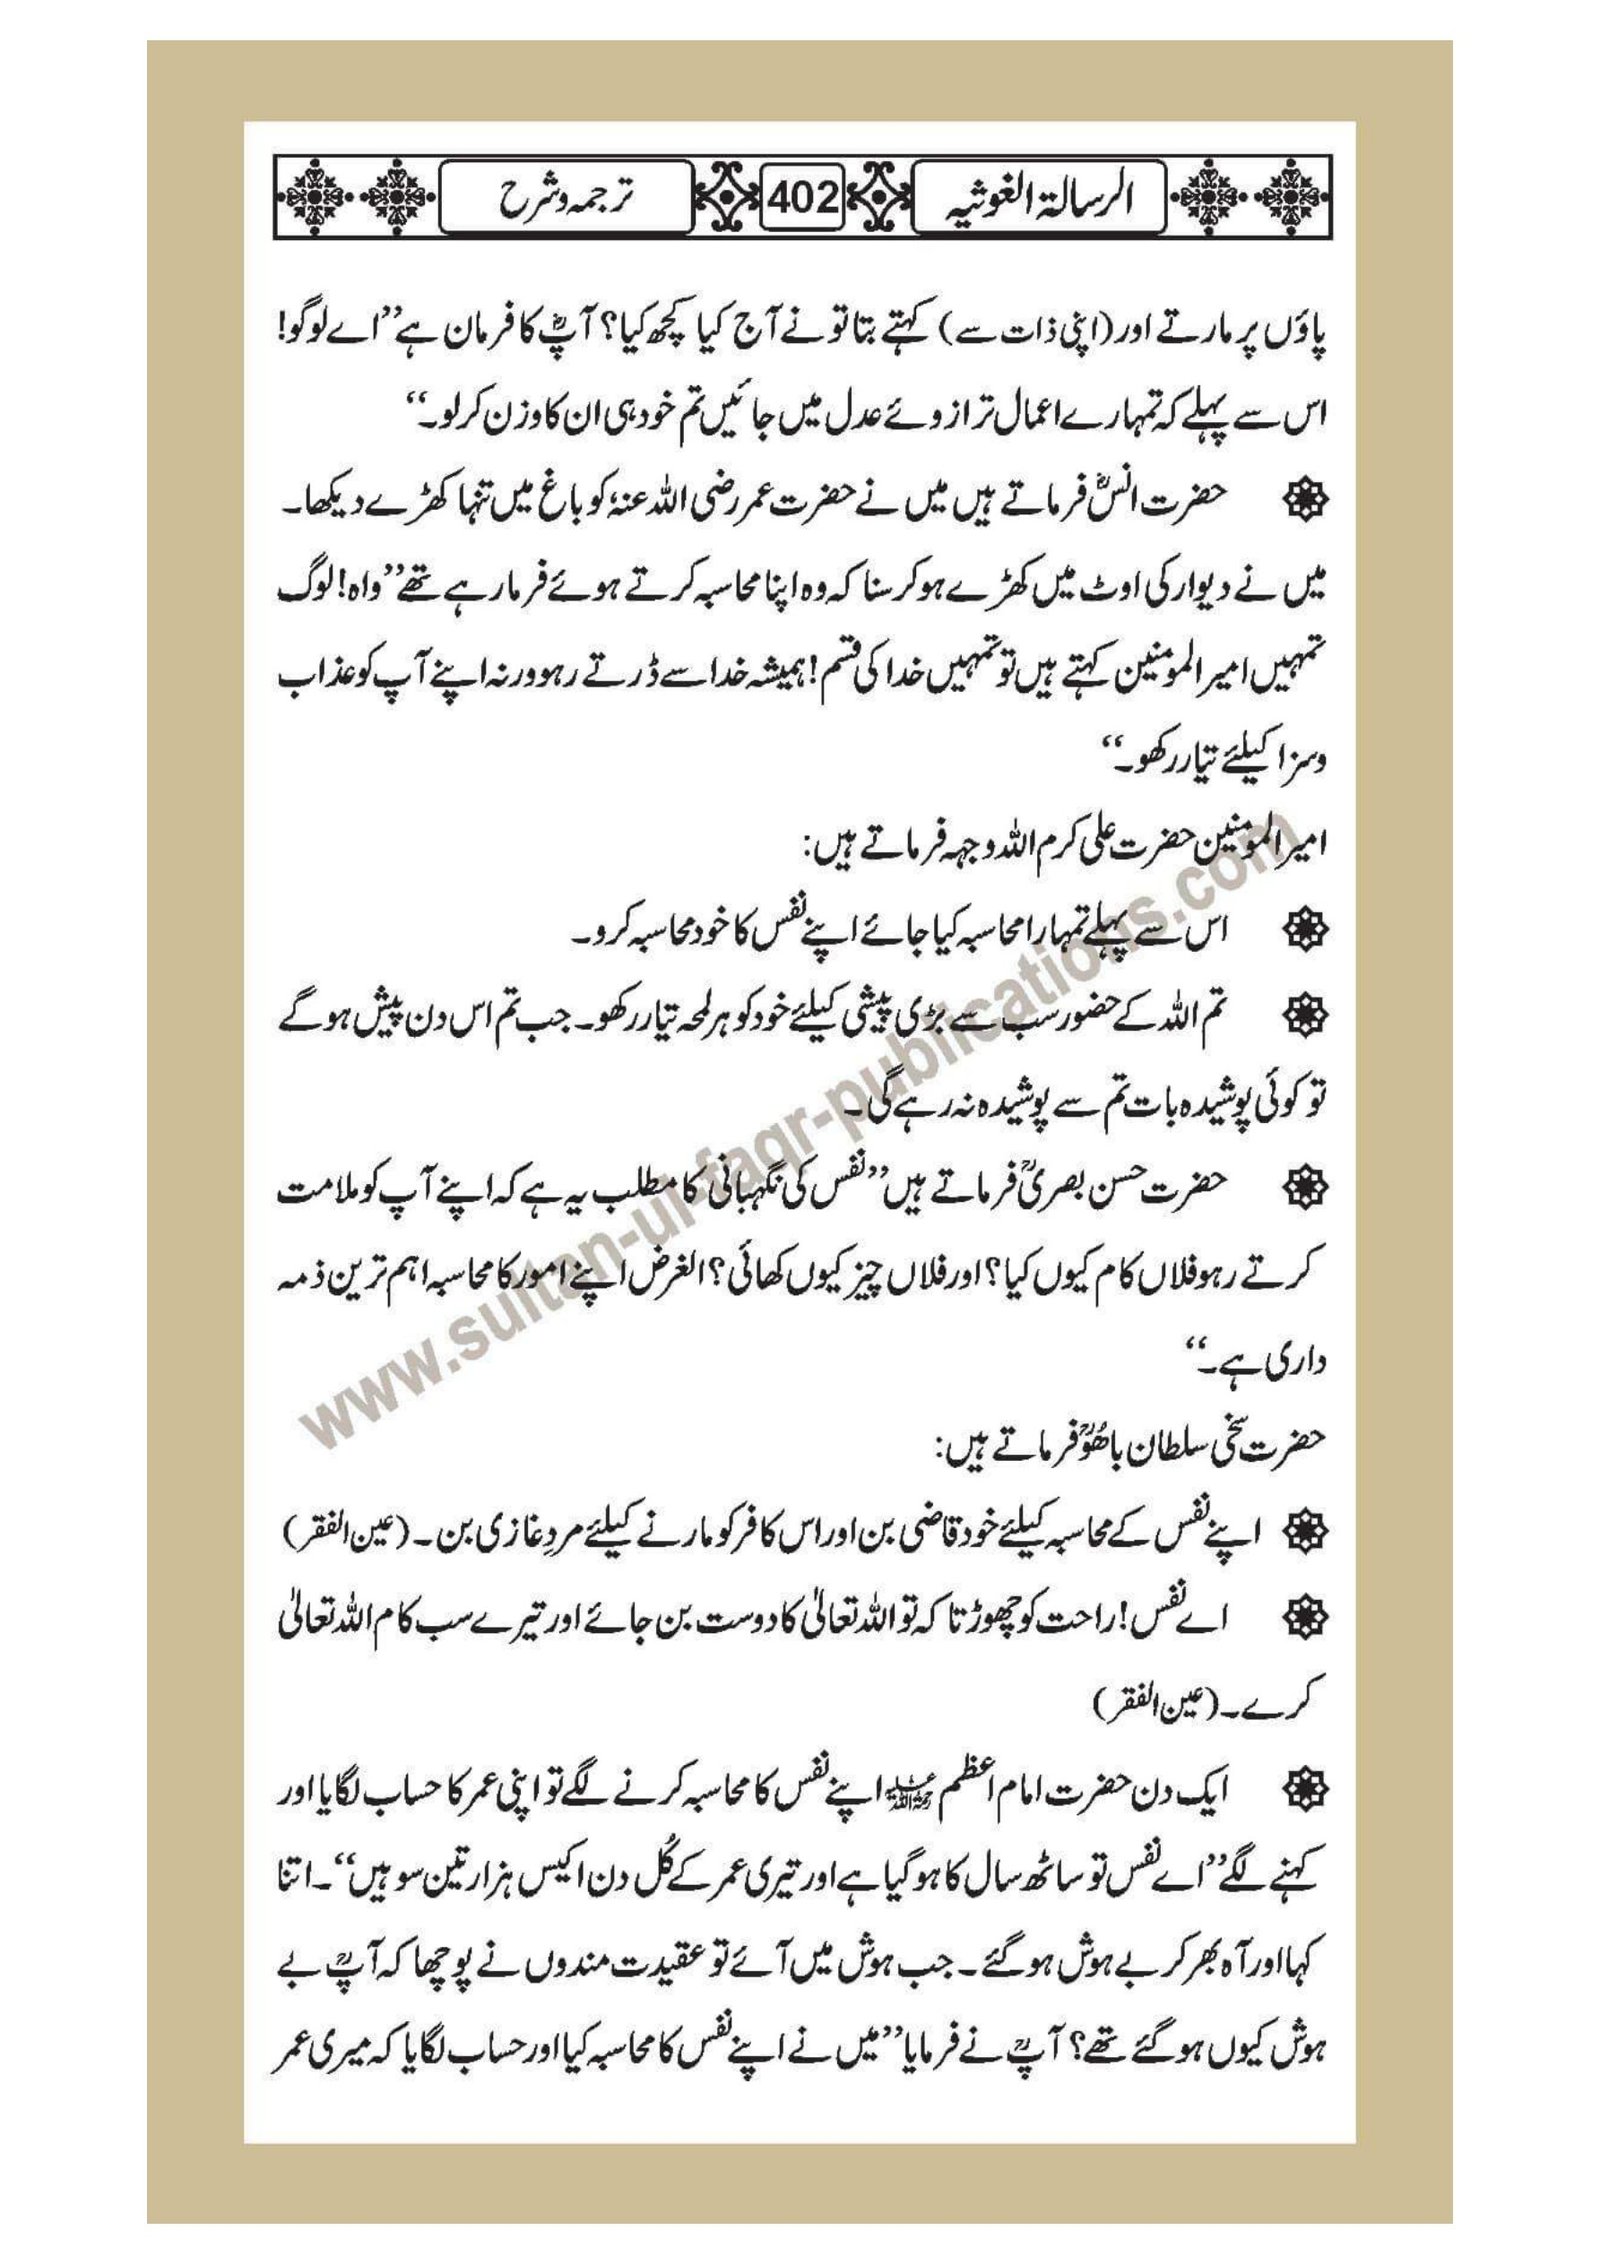 الرسالۃ الغوثیہ 402 ترجمہ و شرح
پاؤں پر مارتے اور (اپنی ذات سے) کہتے بتا تو نے آج کیا کچھ کیا؟ آپؓ کا فرمان ہے ’’اے لوگو!
اس سے پہلے کہ تمہارے اعمال ترازوئے عدل میں جائیں تم خود ہی ان کا وزن کرلو۔‘‘
حضرت انسؓ فرماتے ہیں میں نے حضرت عمر رضی اللہ عنہٗ کو باغ میں تنہا کھڑے دیکھا۔
میں نے دیوار کی اوٹ میں کھڑے ہو کر سنا کہ وہ اپنا محاسبہ کرتے ہوئے فرما رہے تھے ’’واہ! لوگ
تمہیں امیر المومنین کہتے ہیں تو تمہیں خدا کی قسم! ہمیشہ خدا سے ڈرتے رہو ورنہ اپنے آپ کو عذاب
و سزا کیلئے تیار رکھو۔‘‘
امیر المومنین حضرت علی کرم اللہ وجہہ فرماتے ہیں:
اس سے پہلے تمہارا محاسبہ کیا جائے اپنے نفس کا خود محاسبہ کرو۔
تم اللہ کے حضور سب سے بڑی پیشی کیلئے خود کو ہر لمحہ تیار رکھو۔ جب تم اس دن پیش ہو گے
تو کوئی پوشیدہ بات تم سے پوشیدہ نہ رہے گی۔
حضرت حسن بصریؒ فرماتے ہیں ’’نفس کی نگہبانی کا مطلب یہ ہے کہ اپنے آپ کو ملامت
کرتے رہو فلاں کام کیوں کیا؟ اور فلاں چیز کیوں کھائی؟ الغرض اپنے امور کا محاسبہ اہم ترین ذمہ
داری ہے۔‘‘
حضرت سخی سلطان باھُوؒ فرماتے ہیں:
اپنے نفس کے محاسبہ کیلئے خود قاضی بن اور اس کافر کو مارنے کیلئے مردِ غازی بن۔ (عین الفقر)
اے نفس! راحت کو چھوڑ تا کہ تو اللہ تعالیٰ کا دوست بن جائے اور تیرے سب کام اللہ تعالیٰ
کرے۔ (عین الفقر)
ایک دن حضرت امام اعظم رحمۃ اللہ علیہ اپنے نفس کا محاسبہ کرنے لگے تو اپنی عمر کا حساب لگایا اور
کہنے لگے ’’اے نفس تو ساٹھ سال کا ہو گیا ہے اور تیری عمر کے کُل دن اکیس ہزار تین سو ہیں‘‘۔ اتنا
کہا اور آہ بھر کر بے ہوش ہو گئے۔ جب ہوش میں آئے تو عقیدت مندوں نے پوچھا کہ آپؒ بے
ہوش کیوں ہو گئے تھے؟ آپؒ نے فرمایا ’’میں نے اپنے نفس کا محاسبہ کیا اور حساب لگایا کہ میری عمر
www.sultan-ul-faqr-publications.com